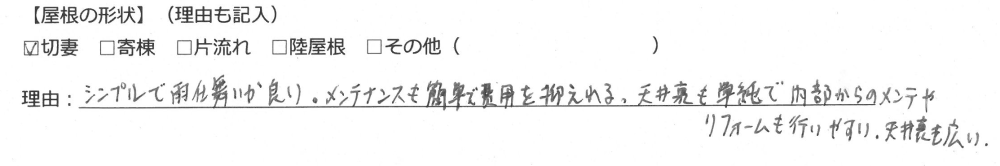 【屋根の形状】（理由も記入）
☑切妻 □寄棟 □片流れ □陸屋根 □その他（　　　　　　　　　）
理由：シンプルで雨仕舞いが良い。メンテナンスも簡単で費用を抑えれる、天井裏も単純で内部からのメンテや
リフォームも行いやすい、天井裏も広い。